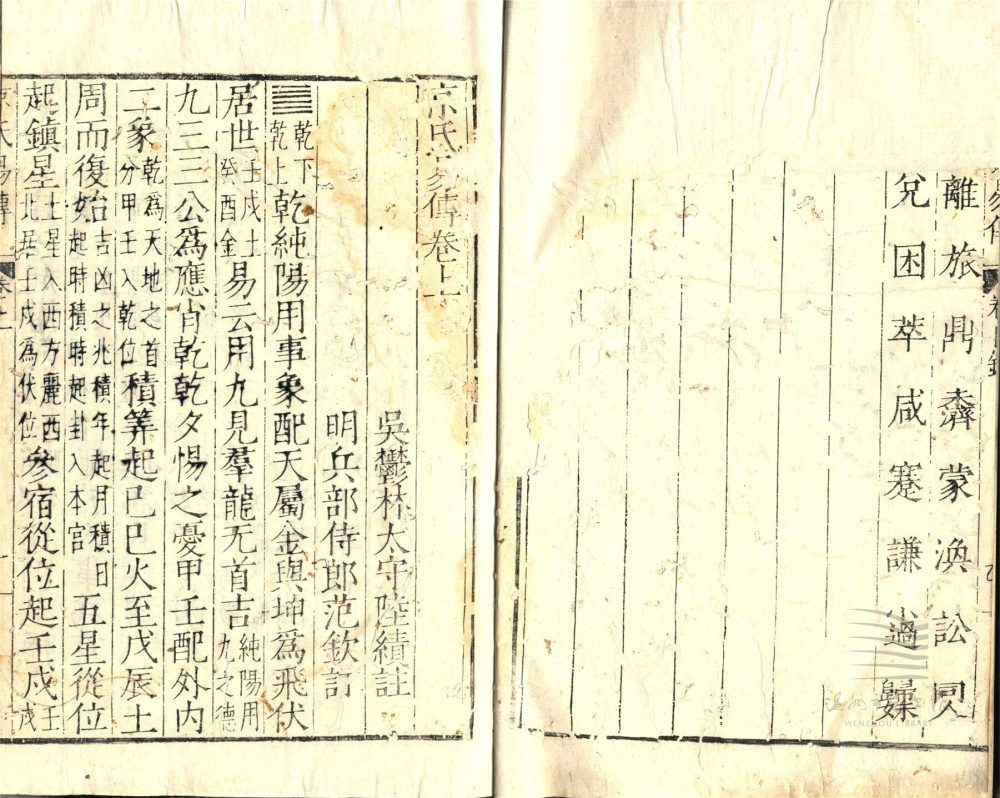 離旅鼎濟蒙渙訟同人
兌困萃咸蹇謙小過歸妹
京氏易傳卷上
吳鬱林太守陸績註
明兵部侍郎范欽訂
䷀乾下乾上乾純陽用事象配天屬金與坤爲飛伏
居世壬戌土癸酉金易云用九見羣龍无首吉純陽用九之德
九三三公爲應肖乾乾夕惕之憂甲壬配外内
二象乾爲天地之首分甲壬入乾位積筭起巳巳火至戊辰土
周而復始吉凶之兆積年起月積日起時積時起卦入本宮五星從位
起鎮星土星入西方麗西北居壬戌爲伏位參宿從位起壬戌壬戌
易傳卷上
WENZHOU LIBRARY